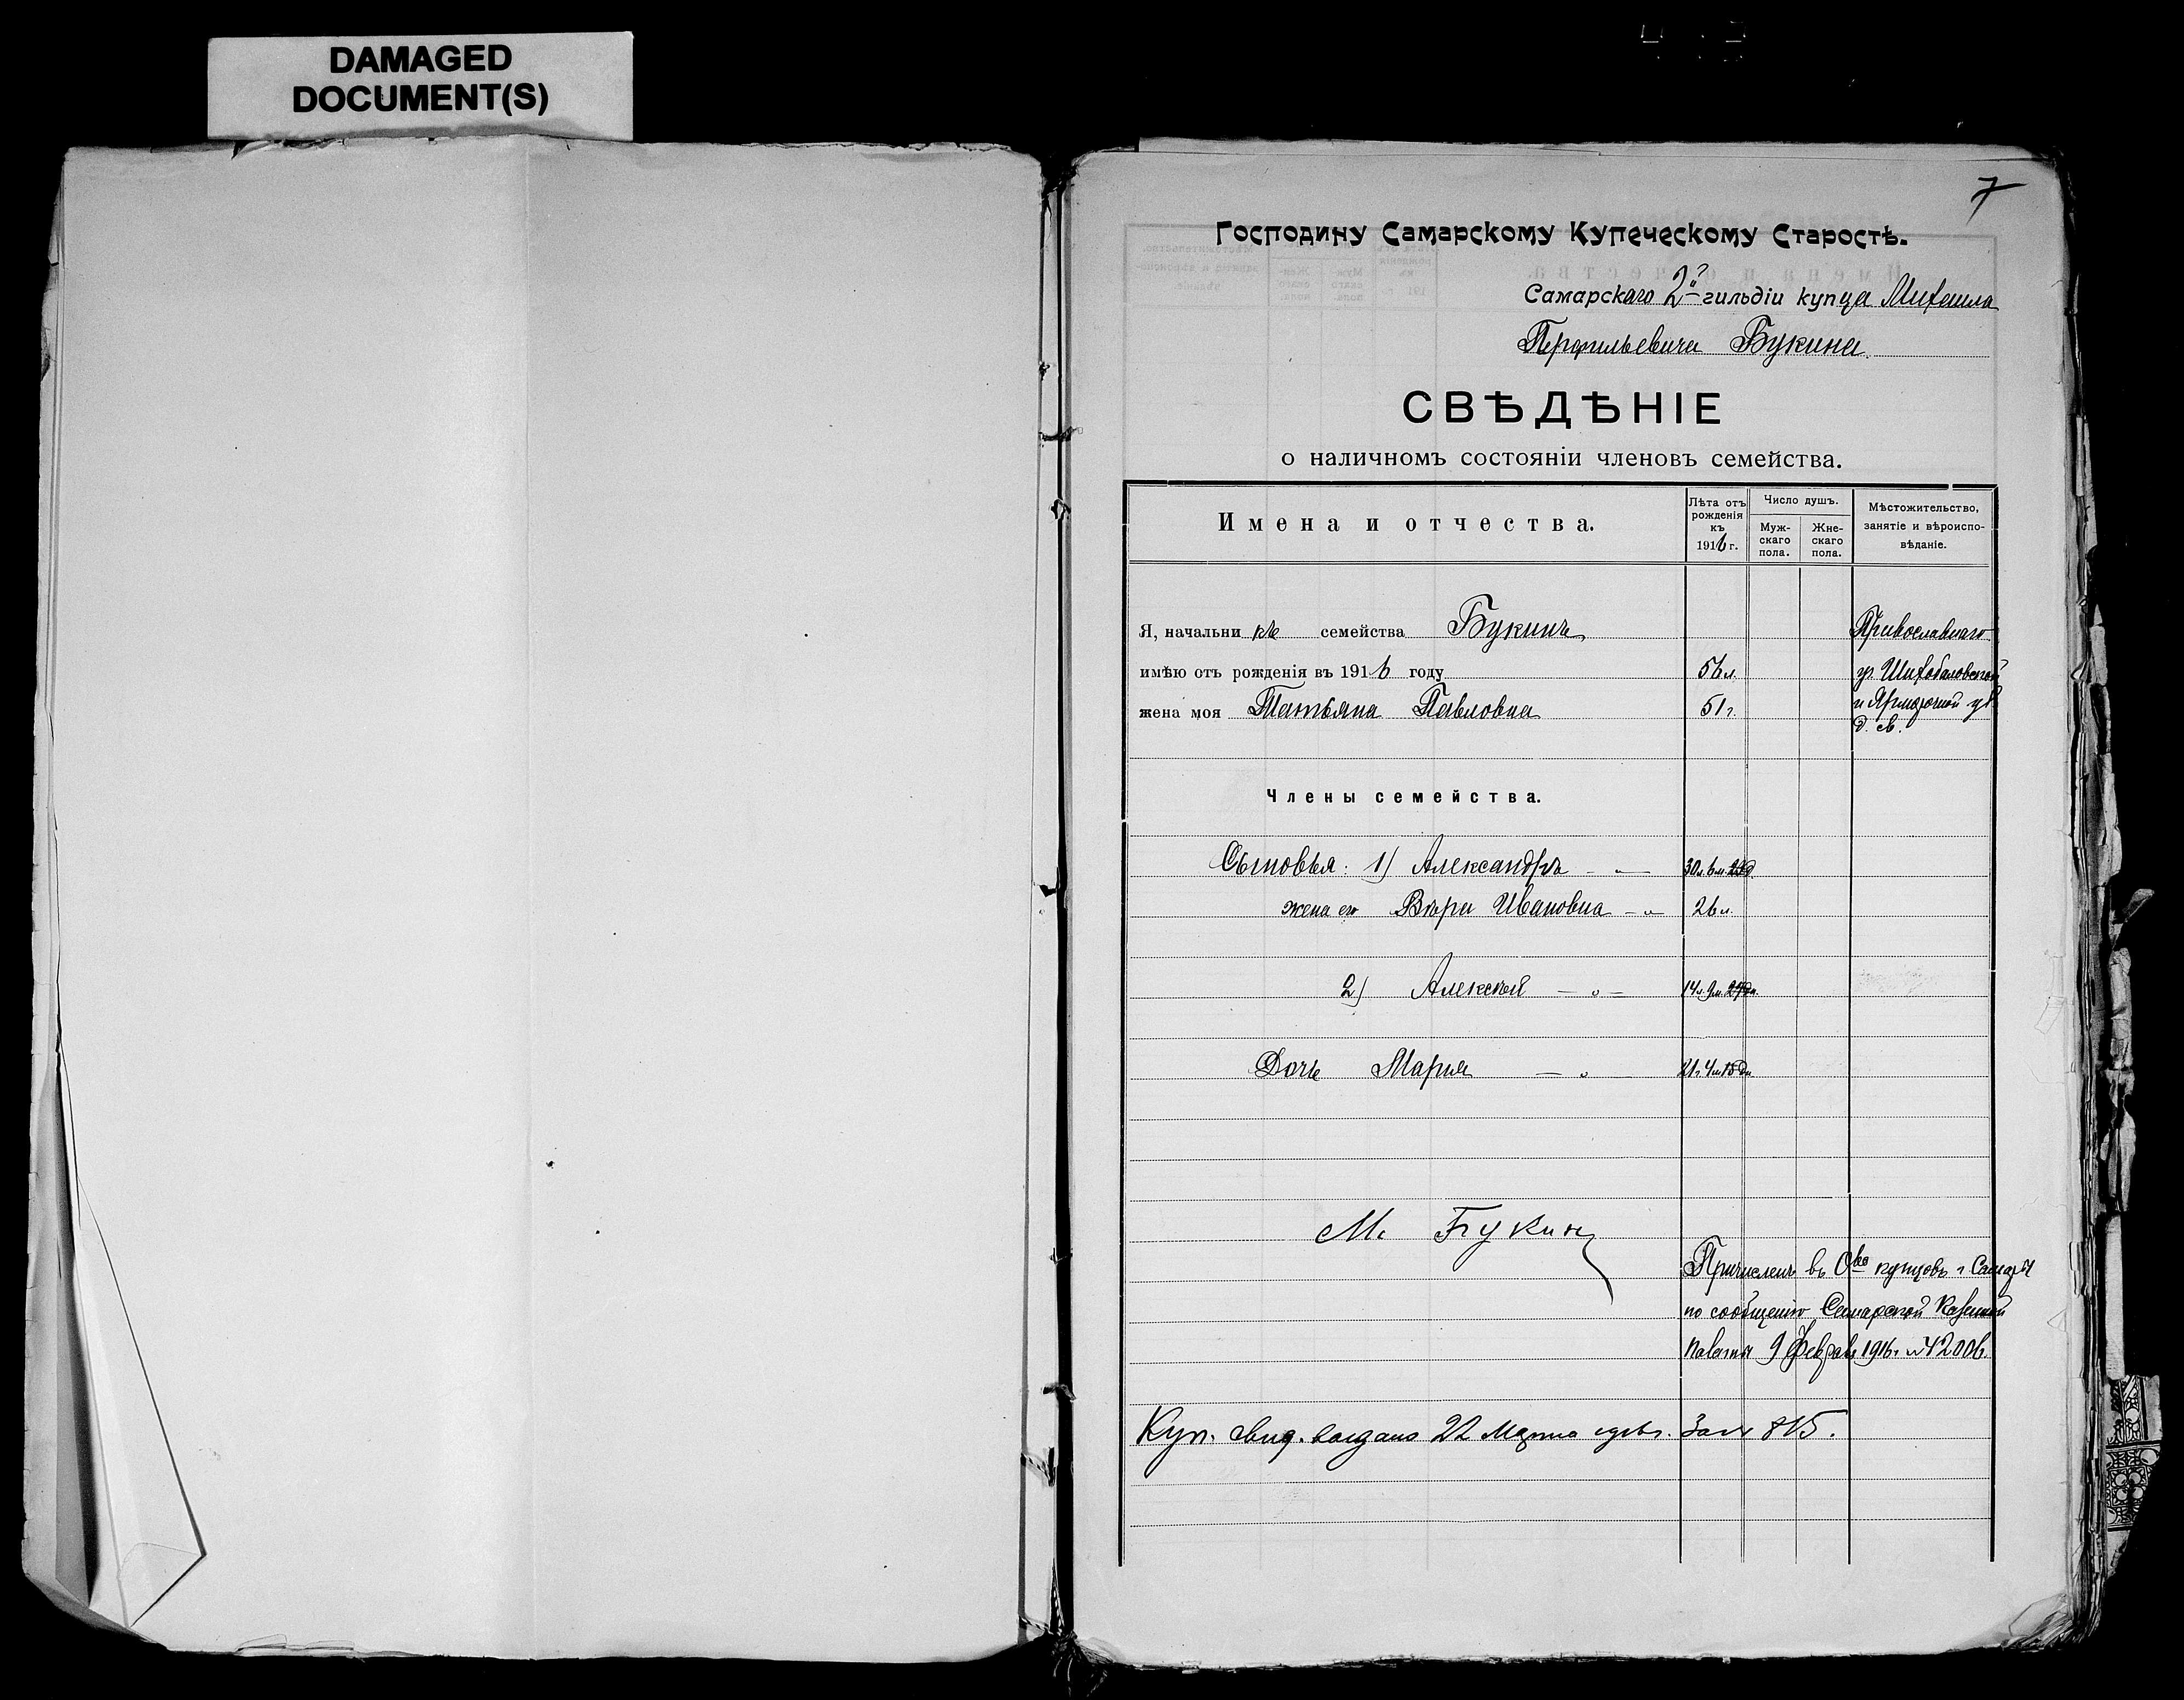 DAMAGED
DOCUMENT(S)
7
Господину Самарскому Купеческому Старостѣ.
Самарскаго 2й гильдіи купца Михаила
Перфильевича Букина.
СВѢДѢНІЕ
о наличномъ состояніи членовъ семейства.
Имена и отчества.
Лѣта отъ рожденія къ 1916 г.
Число душъ.
Муж-
скаго
пола.
Жне-
скаго
пола.
Мѣстожительство,
занятіе и вѣроиспо-
вѣданіе.
Я, начальникъ семейства Букинъ Православнаго
имѣю отъ рожденія въ 1916 году 56 л. уг. Шихобаловской
жена моя Татьяна Павловна 51 г. и Ярмарочной ул.
д. св.
Члены семейства.
Сыновья: 1) Александръ — " — 30 л. 6 м. 22 д.
жена его Вѣра Ивановна — " — 26 л.
2) Алексѣй — " — 14 л. 9 м. дн.
Дочь Марія — " — 21 г. 4 м. 15 дн.
М. Букинъ
Причисленъ въ Ово купцовъ г. Самары
по сообщенію Самарской Казенной
Палаты 9 Февраля 1916 г. № 42006.
Куп. свид. выдано 22 Марта за № 815.